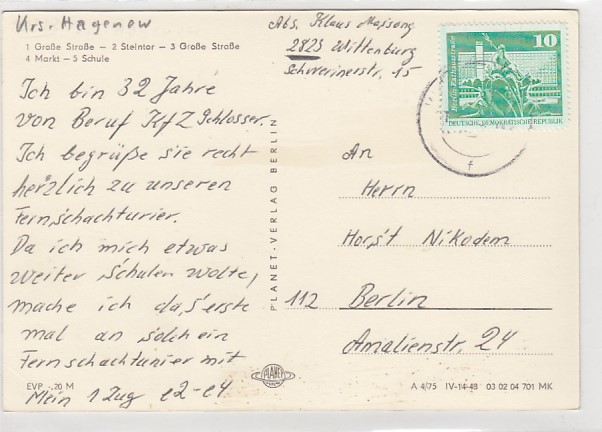 Krs. Hagenow
1 Große Straße – 2 Steintor – 3 Große Straße
4 Markt – 5 Schule
Ich bin 32 Jahre
von Beruf KfZ Schlosser.
Ich begrüße sie recht
herzlich zu unseren
Fernschachturier.
Da ich mich etwas
weiter Schulen wolte,
mache ich das erste
mal an solch ein
Fernschachturier mit
EVP -.20 M
Mein 1 Zug e2-e4
PLANET-VERLAG BERLIN
PLANET
Abs. Klaus
2823 Wittenburg
Schwerinerstr. 15
10
Berlin, Rathausstraße
DEUTSCHE DEMOKRATISCHE REPUBLIK
f
An
Herrn
Horst Nikodem
112 Berlin
Amalienstr. 24
A 4/75 IV-14-48 03 02 04 701 MK